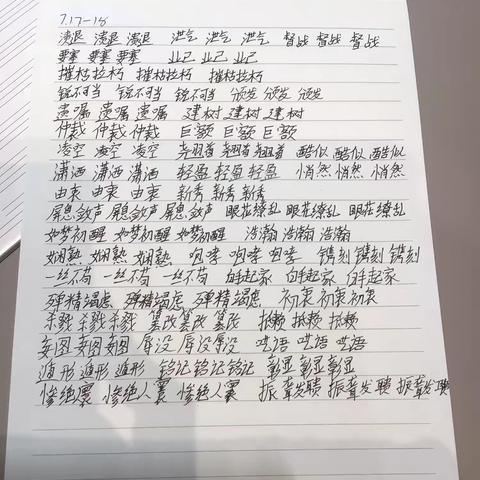 7.17-18
溃退 溃退 溃退 泄气 泄气 泄气 督战 督战 督战
要塞 要塞 要塞 业已 业已 业已
摧枯拉朽 摧枯拉朽 摧枯拉朽
锐不可当 锐不可当 锐不可当 颁发 颁发 颁发
遗嘱 遗嘱 遗嘱 建树 建树 建树
仲裁 仲裁 仲裁 巨额 巨额 巨额
凌空 凌空 凌空 翘首 翘首 翘首 酷似 酷似 酷似
潇洒 潇洒 潇洒 轻盈 轻盈 轻盈 悄然 悄然 悄然
由衷 由衷 由衷 新秀 新秀 新秀
屏息敛声 屏息敛声 屏息敛声 眼花缭乱 眼花缭乱 眼花缭乱
如梦初醒 如梦初醒 如梦初醒 浩瀚 浩瀚 浩瀚
娴熟 娴熟 娴熟 咆哮 咆哮 咆哮 镌刻 镌刻 镌刻
一丝不苟 一丝不苟 一丝不苟 白手起家 白手起家
殚精竭虑 殚精竭虑 殚精竭虑 初衷 初衷 初衷
杀戮 杀戮 杀戮 篡改 篡改 篡改 抵赖 抵赖 抵赖
妄图 妄图 妄图 屠没 屠没 屠没 呓语 呓语 呓语
遁形 遁形 遁形 铭记 铭记 铭记 彰显 彰显 彰显
惨绝人寰 惨绝人寰 惨绝人寰 振聋发聩 振聋发聩 振聋发聩